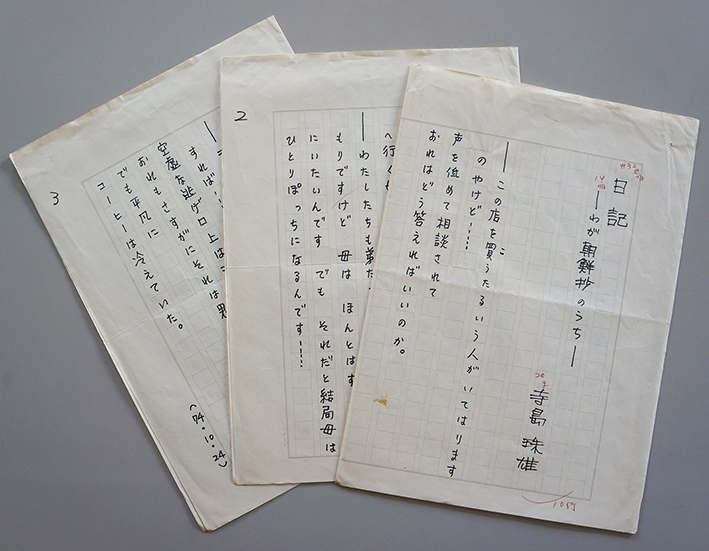 日記
——わが朝鮮抄のうち——
寺島珠雄
——この店を買うたるいう人がいてはります
のやけど……
声を低めて相談されて
おれはどう答えればいいのか。
10行
2
へ行く
——わたしたちも弟た
もりですけど 母は ほんとはす
にいたいんです でも それだと結局母は
ひとりぽっちになるんです……
3
すれば
空虚な逃げ口上は
おれもさすがにそれは
でも平凡に
コーヒーは冷えていた。
(74・10・24)